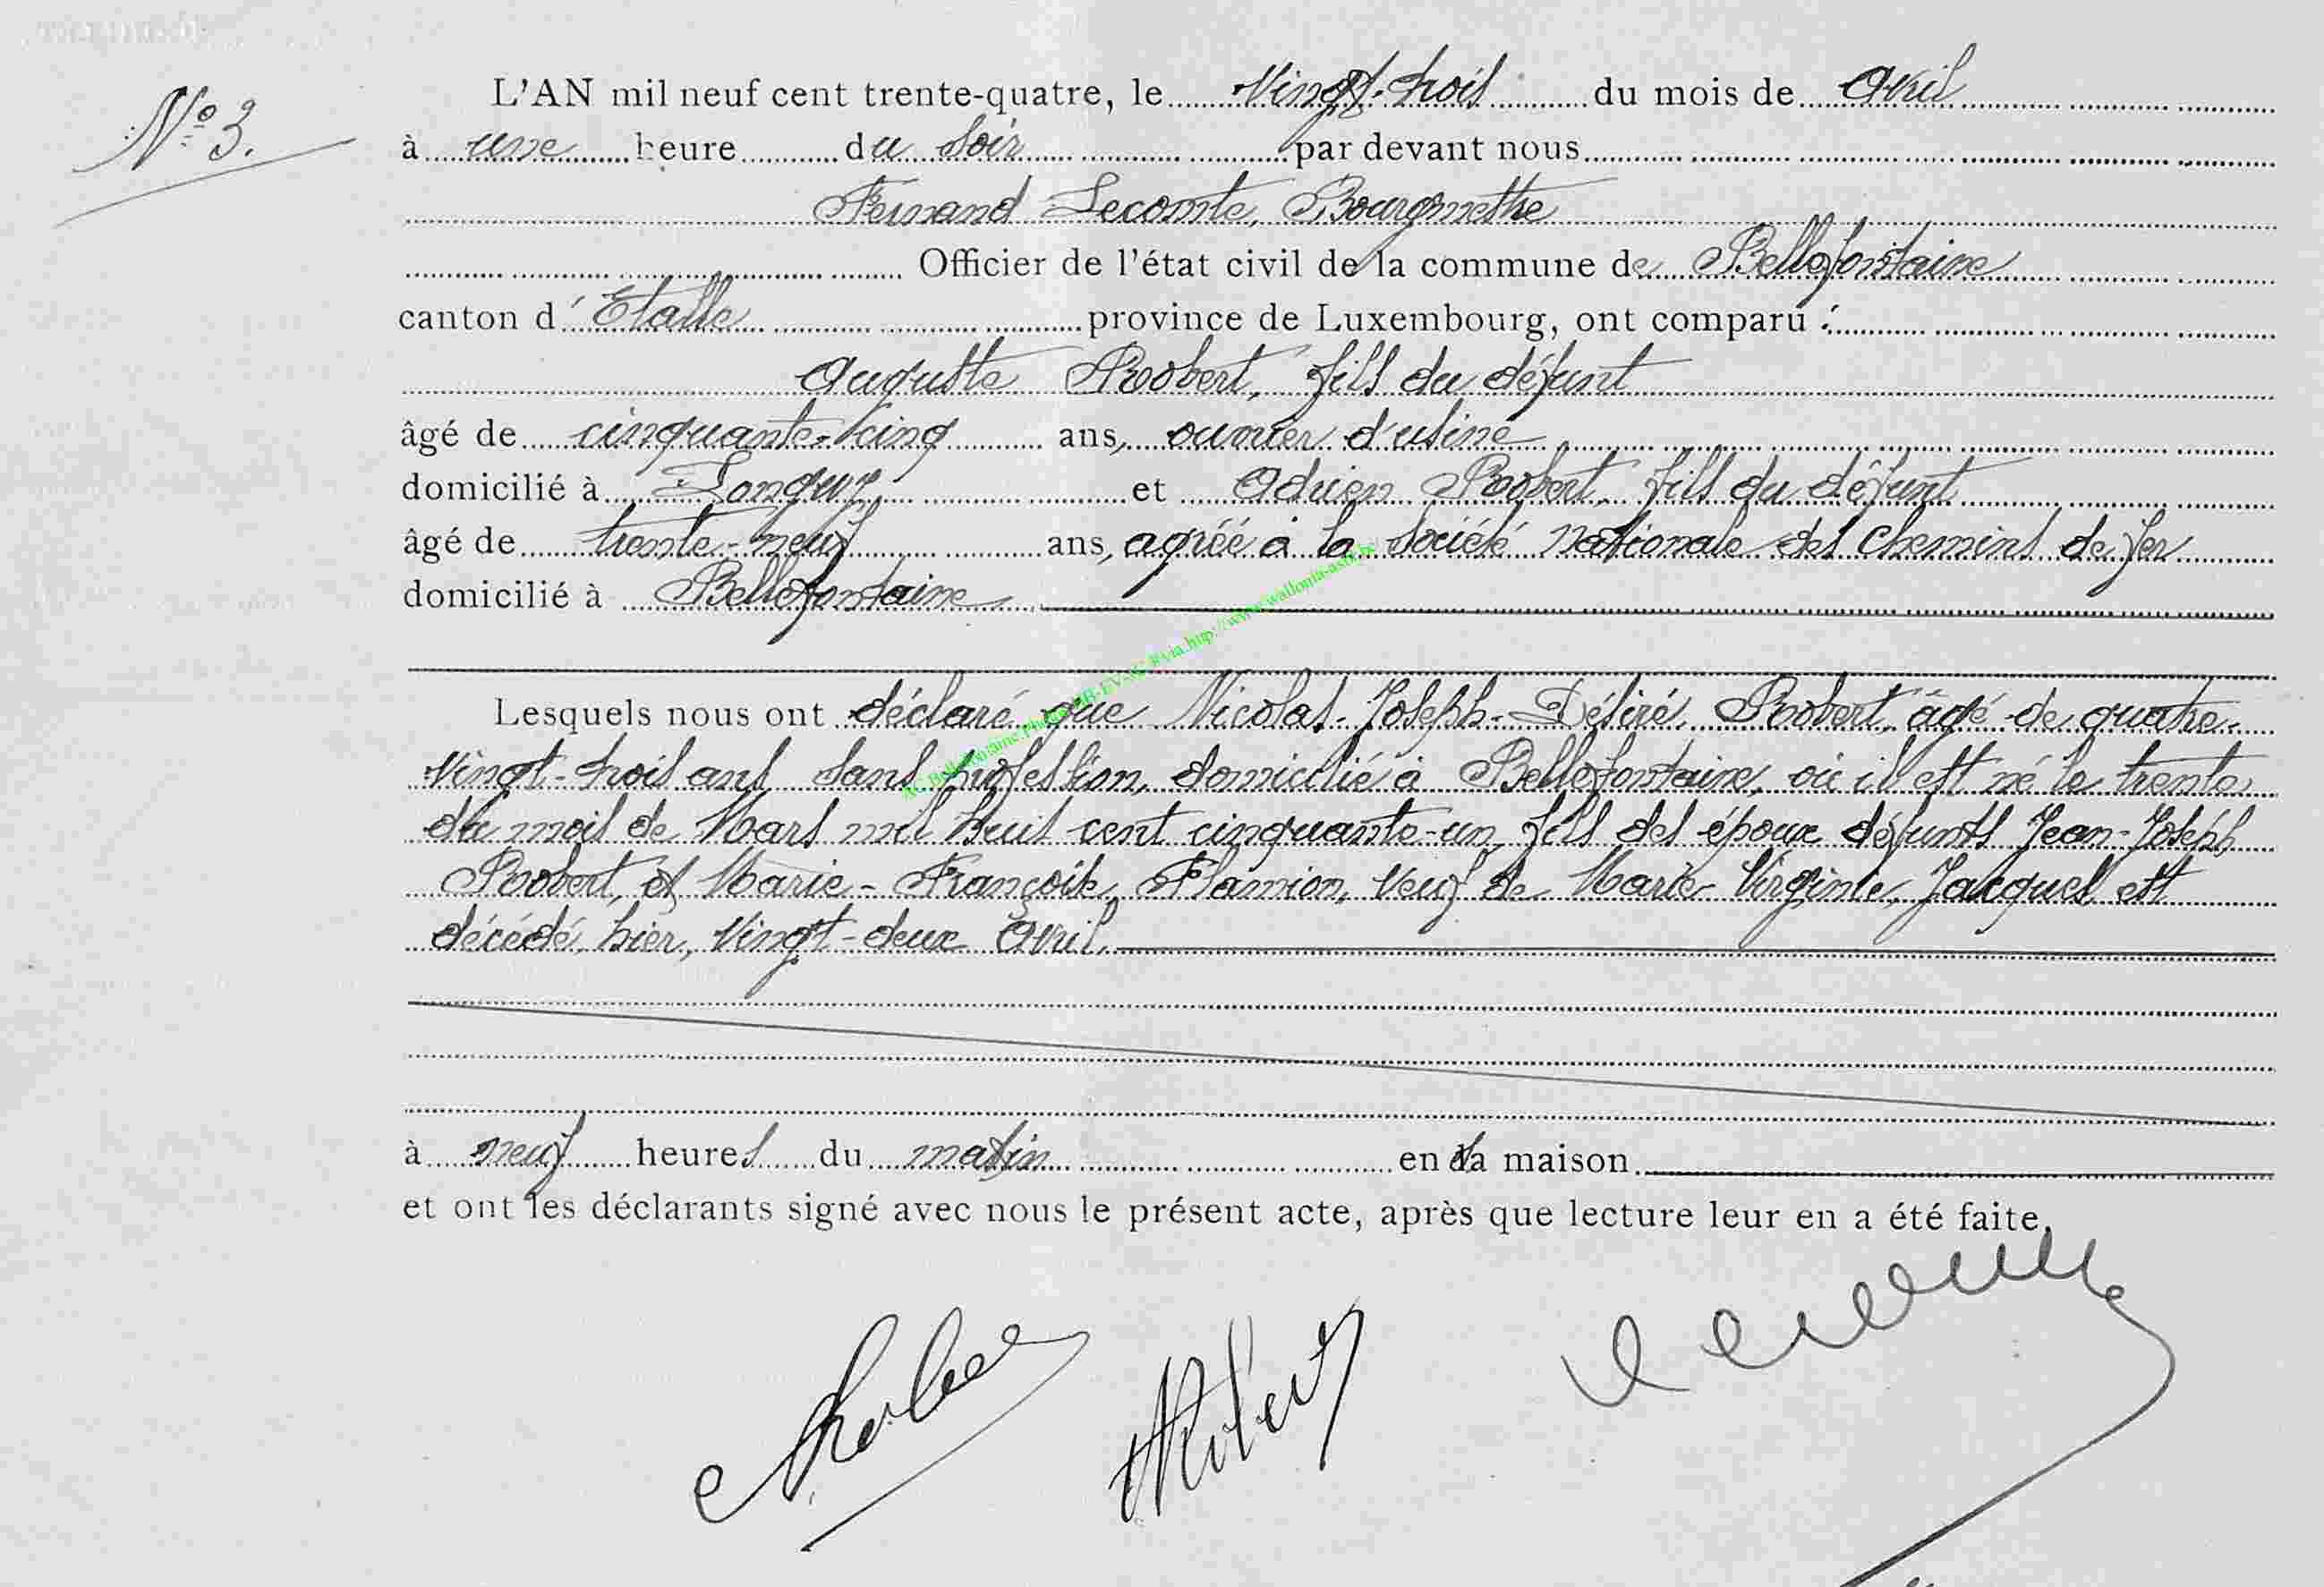 N° 3.
L'AN mil neuf cent trente-quatre, le Vingt-trois du mois de Avril
à une heure du soir par devant nous
Fernand Lecomte, Bourgmestre
Officier de l'état civil de la commune de Bellefontaine
canton d'Etalle province de Luxembourg, ont comparu :
Auguste Robert, fils du défunt
âgé de cinquante-cinq ans, ouvrier d'usine
domicilié à Longwy, et Adrien Robert, fils du défunt
âgé de trente-neuf ans, agréé à la société nationale des Chemins de fer
domicilié à Bellefontaine
Lesquels nous ont déclaré que Nicolas-Joseph-Désiré Robert, âgé de quatre-
vingt-trois ans sans profession, domicilié à Bellefontaine, où il est né le trente
du mois de Mars mil huit cent cinquante-un, fils des époux défunts Jean-Joseph
Robert, et Marie-Françoise, Flamion, veuf de Marie-Virginie, Jacques est
décédé, hier, vingt-deux Avril,
à neuf heures du matin en sa maison
et ont les déclarants signé avec nous le présent acte, après que lecture leur en a été faite.
Robert
Robert
Lecomte